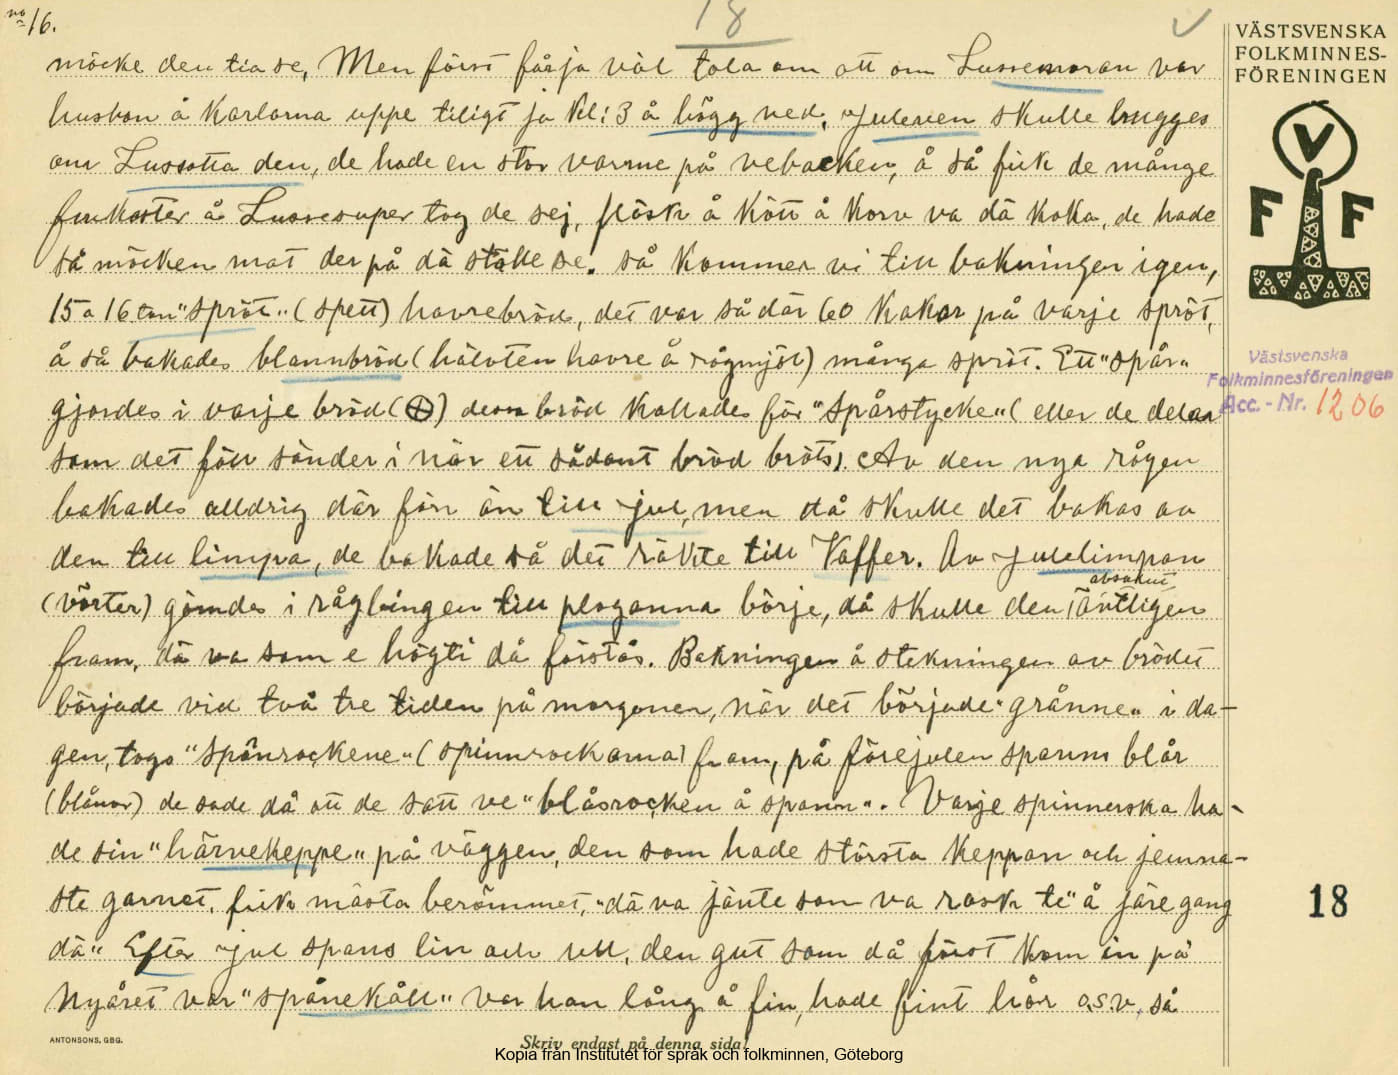 no 16.
18
VÄSTSVENSKA
FOLKMINNES-
FÖRENINGEN
V
F F
möcke den tia se, Men först får ja väl tola om att om Lussemoran var
husbon å Karlarna uppe tiligt ja kl: 3 å högg ved, Juleveen skulle huggas
om Lussotta den, de hade en stor varme på vebacken, å så fick de många
frukoster å Lussesuper tog de sej, fläsk å kött å korv va dä koka, de hade
så möcken mat der på dä stölle se. så kommer vi till bakningen igen,
15 a 16 ton "spröt" (spett) havrebröd, det var så där 60 kakor på varje spröt,
å så bakades blannbröd (hälvten havre å rögmjöl) många spröt. Ett "spår"
gjordes i varje bröd (⊕) dessa bröd kallades för "Spårstycke" (eller de delar
som det föll sönder i när ett sådant bröd bröts). Av den nya rågen
bakades alldrig där förr än till jul, men då skulle det bakas av
den till limpa, de bakade så det räkte till Vaffer. Av Julelimpan
(vörter) gömdes i rågbingen till plogarna börje, då skulle den absolut äntligen
fram, dä va som e högti då förstås. Bakningen å stekningen av brödet
började vid två tre tiden på morgonen, när det började "grånne" i da-
gen, togs "Spånrockene" (spinnrockarna) fram, på förejulen spanns blår
(blånor) de sade då att de satt ve "blåsrocken å spann". Varje spinnerska ha-
de sin "härvekeppe" på väggen, den som hade största keppan och jemna-
ste garnet, fick mästa berömmet, "dä va jänte som va rask te" å järe gang
dä" Efter jul spans lin och ull, den gut som då först kom in på
Nyåret var "spånekåll" var han lång å fin, hade fint hår o.s.v, så
Västsvenska
Folkminnesföreningen
Acc. - Nr. 1206
18
ANTONSONS, GBG.
Skriv endast på denna sida!
Kopia från Institutet för språk och folkminnen, Göteborg